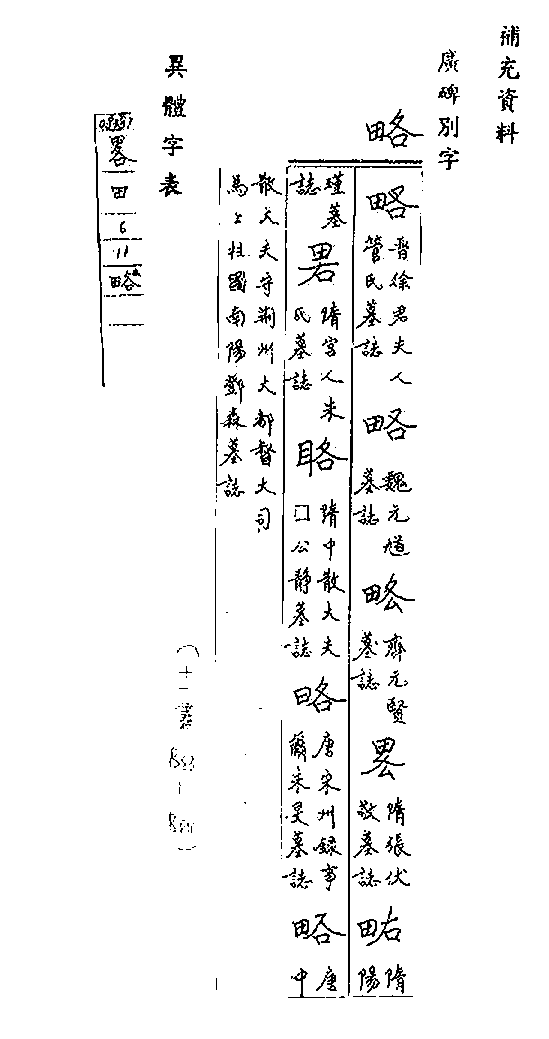 補充資料
廣碑別字
略
略 晉徐君夫人管氏墓誌 略 魏元
墓誌 略 齊元賢墓誌 畧 隋張伏敬墓誌 略 隋陽
瑾墓誌 畧 隋宮人朱氏墓誌 略 隋中散大夫□公靜墓誌 略 唐宋州錄事
墓誌 略 唐中
散大夫守荊州大都督大司
馬上柱國南陽鄧森墓誌
異體字表
畧
田
6
11
略